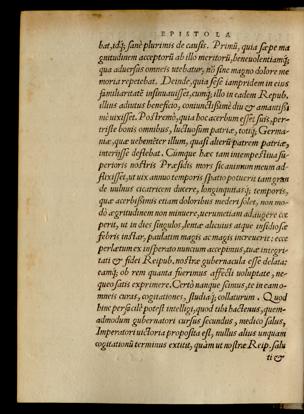 EPISTOLA
bat, idq́; sanè plurimis de causis. Primũ, quia sæpe ma
gnitudinem acceptorũ ab illo meritorũ, beneuolentiamq́;
qua aduersus omneis utebatur, nõ sine magno dolore me
moria repetebat. Deinde, quia sese iampridem in eius
familiaritatẽ insinuauisset, cumq́; illo in eadem Repub.
illius adiutus beneficio, coniunctißimè diu & amantißi
mè uixisset. Postremò, quia hoc acerbum esset suis, per-
triste bonis omnibus, luctuosum patriæ, totiq́; Germa-
niæ, quæ uehemẽter illum, quasi alterũ patrem patriæ,
interijsse deflebat. Cùmque hæc tam intempestiua su-
perioris nostri Præsidis mors sic animum meum ad-
strixisset, ut uix annuo temporis spatio potuerit tam gran
de uulnus cicatricem ducere, longinquitasq́; temporis,
quæ acerbißimis etiam doloribus mederi solet, non mo-
dò ægritudinem non minuere, uerumetiam adaugere cœ
perit, ut in dies singulos, lentæ alicuius atque insidiosæ
febris instar, paulatim magis ac magis increuerit: ecce
perlatum ex insperato nuncium accepimus, tuæ integri-
tati & fidei Reipub. nostræ gubernacula esse delata:
eamq́; ob rem quanta fuerimus affecti uoluptate, ne-
queo satis exprimere. Certò nanque scimus, te in eam o-
mneis curas, cogitationes, studiaq́; collaturum. Quod
hinc perfacilè potest intelligi, quod tibi hactenus, quem-
admodum gubernatori cursus secundus, medico salus,
Imperatori uictoria proposita est, nullus alius unquam
cogitationũ terminus extitit, quàm ut nostræ Reip. salu
ti &